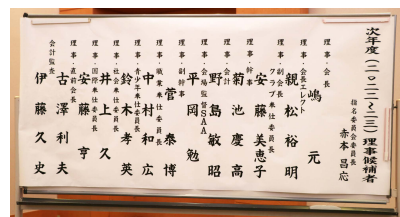 次年度(二〇二二～二三)理事候補者
指名委員会委員長 赤本 昌応
理事・会長 嶋 元
理事・会長エレクト 親松 裕明
理事・副会長
クラブ奉仕委員長 安藤 美恵子
理事・幹事 菊池 慶高
理事・会計 野島 敏昭
理事・会場監督SAA 平岡 勉
理事・副幹事 菅 泰博
理事・職業奉仕委員長 中村 和広
理事・青少年奉仕委員長 鈴木 孝英
理事・社会奉仕委員長 井上 久
理事・国際奉仕委員長 安藤 亨
理事・直前会長 古澤 利夫
会計監査 伊藤 久史